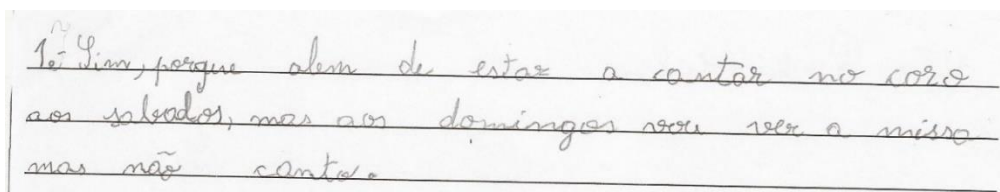 1.- Sim, porque alem de estar a cantar no coro
aos sabados, mas aos domingos vou ver a missa
mas não canto.